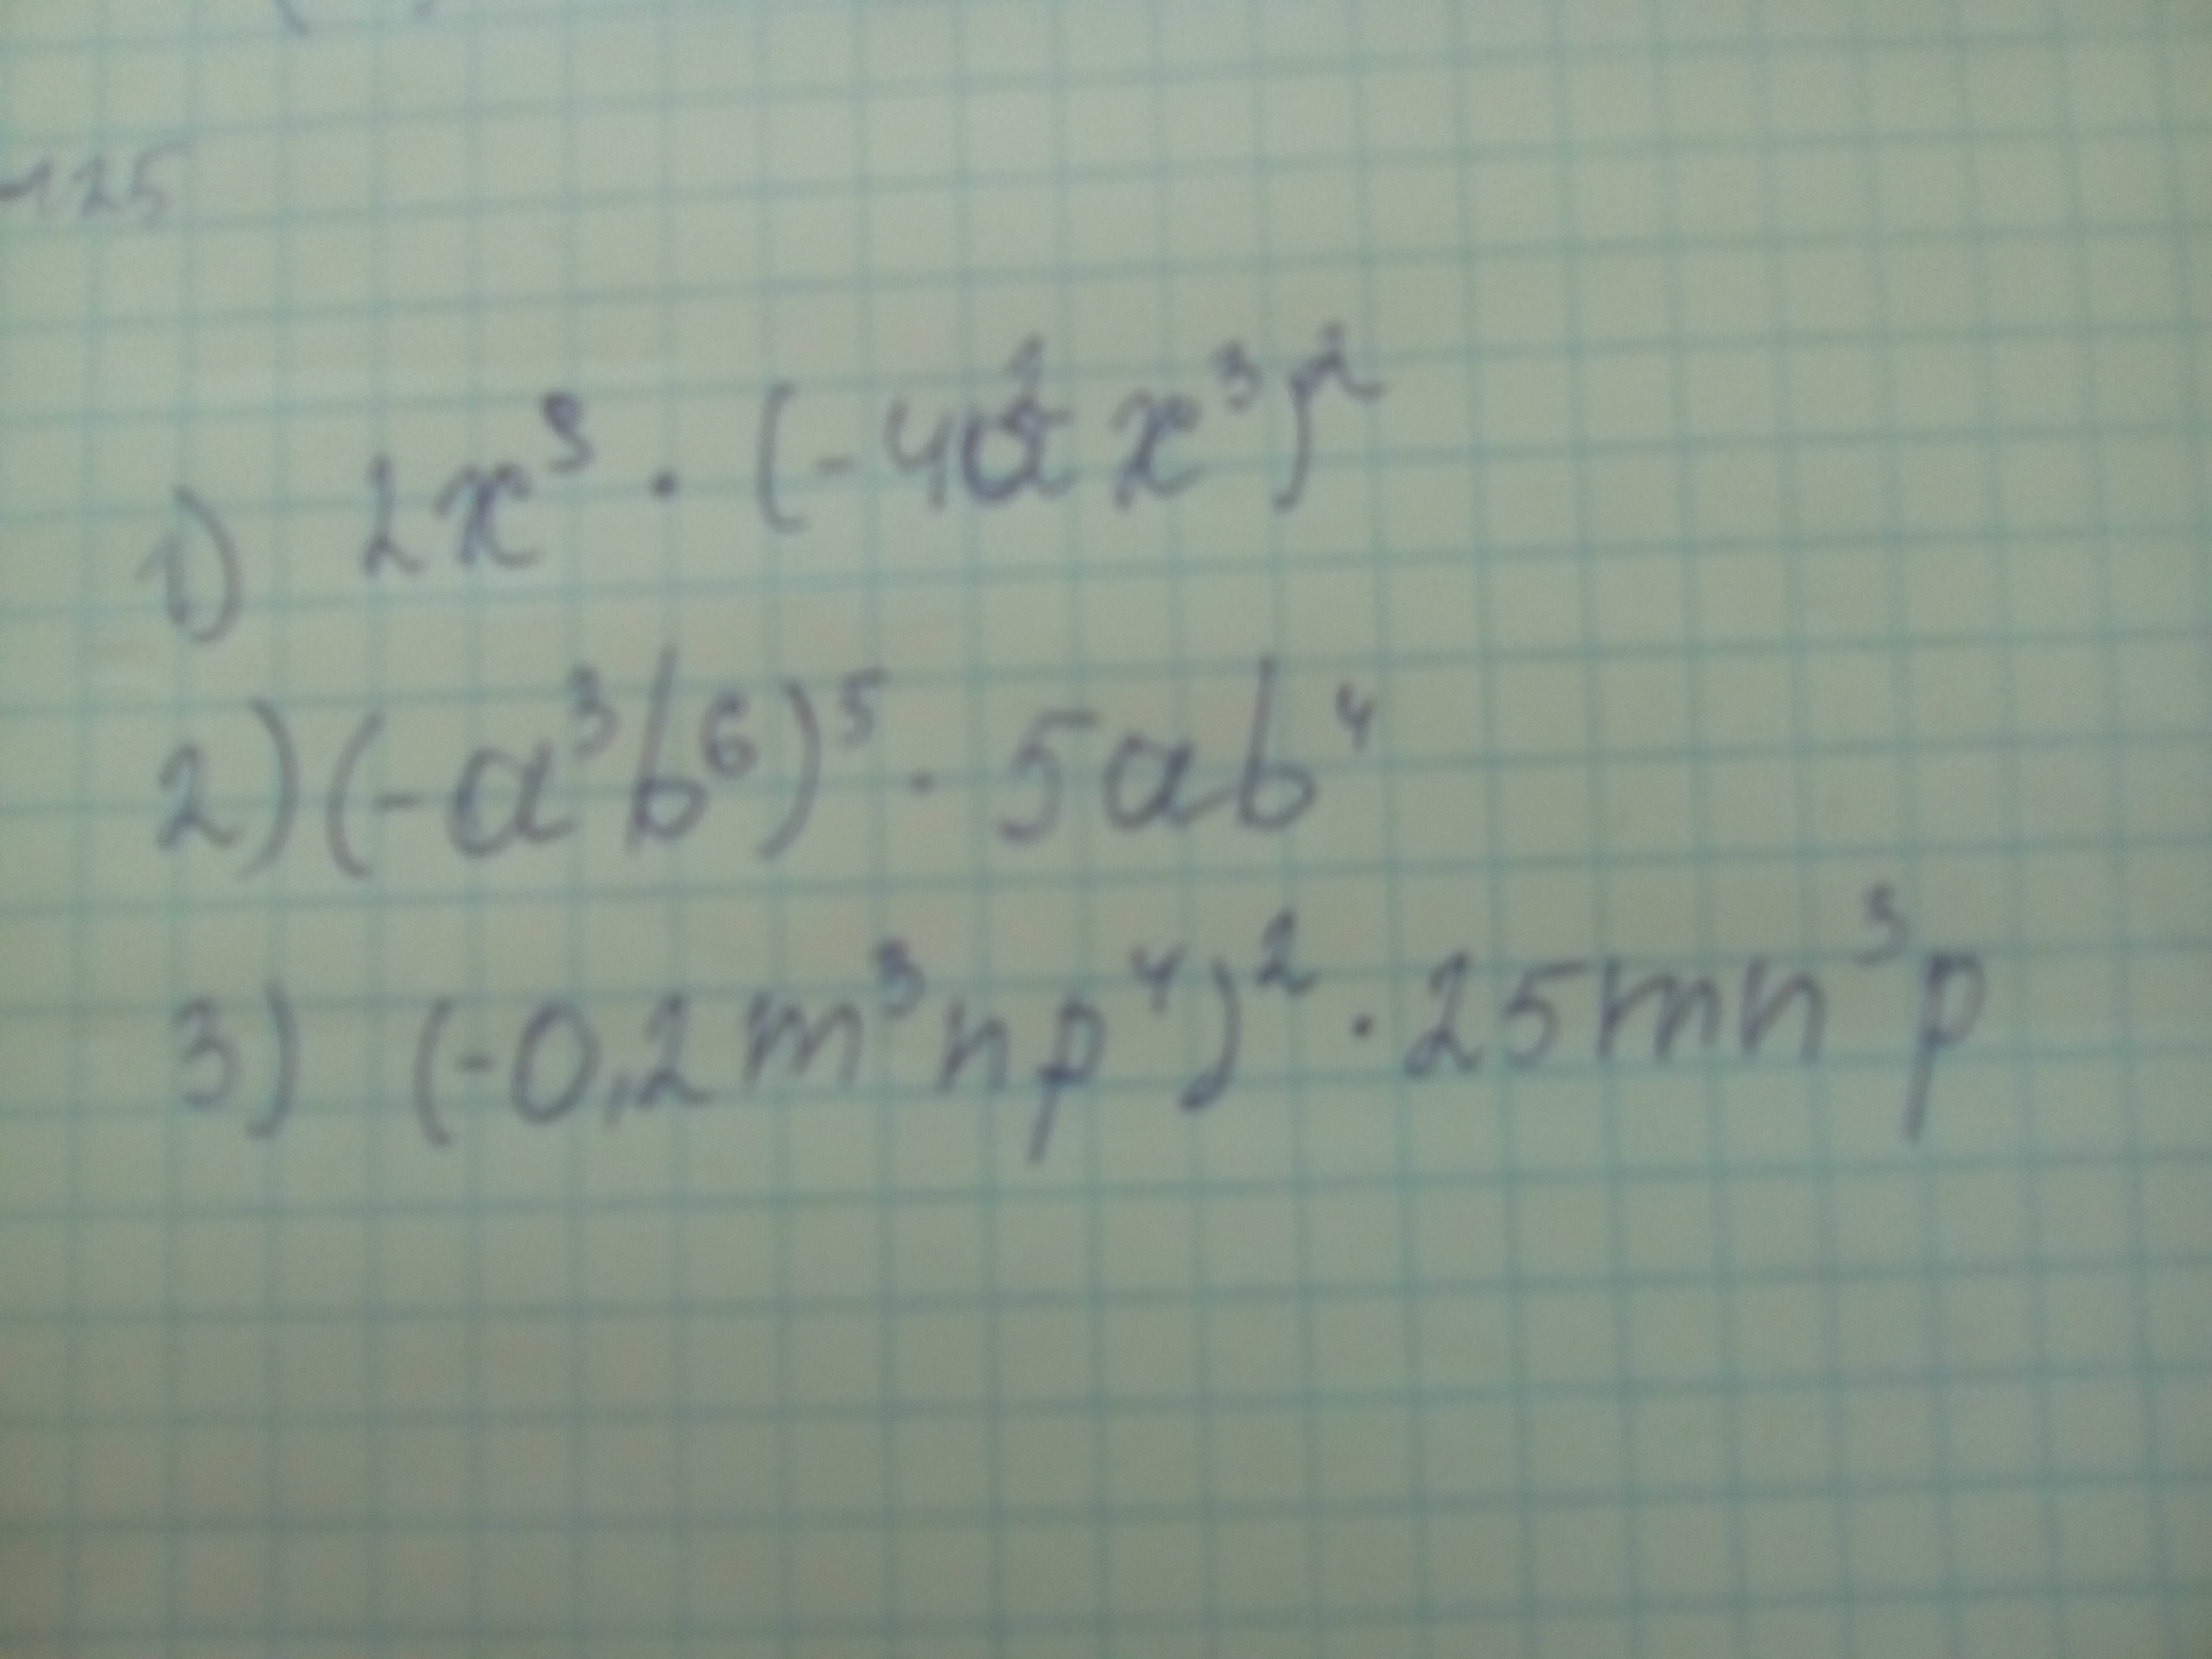 125
1) 2x³ · (-4a²x³)²
2) (-a³b⁶)⁵ · 5ab⁴
3) (-0,2m³np⁴)² · 25mn³p